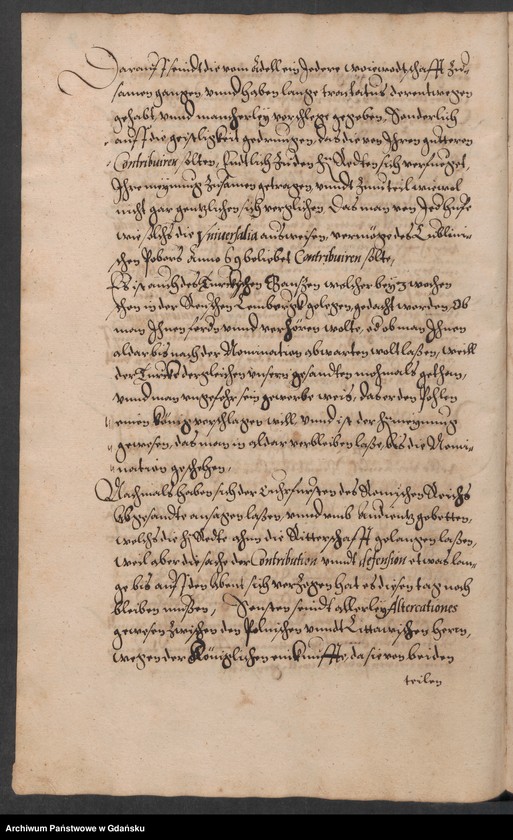 Darauff seindt die vom Adell ein Jedere woiewodtschafft zu-
samen gangen vnnd haben lange tractatus derentwegen
gehabt vnnd mancherley vorschlege gegeben, Sonderlich
auff die geistligkeit gedrungen, das die von Ihren guttern
Contribuiren solten, Endtlich zu den hrn Redten sich verfueget,
Ihre meynung zusamen getragen, vnndt zum teil wiewol
nicht gar gentzlichen sich verglichen, Das man von Jed hufe
wie solchs die Vniuersalia ausweisen, vermöge des Lublini-
schen Pobors Anno 69 beliebet Contribuiren solte,
Es ist auch des Turckschen welcher bey 3 wochen
schon in der Reuschen Lemburgk gelegen, gedacht worden, Ob
man Ihnen fordn vnnd verhören wolte, od ob man Ihnen
aldar bis nach der Nomination abwarten wolt laßen, weill
der Turcke dergleichen vnsern gesandten mehmals gethan,
vnnd man vngefehr sein gewerbe weis, das er den Pohlen
einen könig vorschlagen will, vnnd ist der hrn meynung
gewesen, das man in aldar verbleiben laße, bis die Nomi-
nation geschehen,
Nachmals haben sich der Churfursten des Romischen Reichs
Abgesandte ansagen laßen, vnnd vmb Audientz gebetten,
welchs die hrn Redte ahn die Ritterschafft gelangen laßen,
weil aber die sache der Contribution vnndt defension etwas lan-
ge bis auff den abent sich verzogen hat es diesen tag noch
bleiben mußen, Sonsten seindt allerley Altercationes
gewesen zwischen den Polnischen vnndt Littawischen herrn,
wegen der Königlichen einkunffte, da sie von beiden
teilen
Archiwum Państwowe w Gdańsku